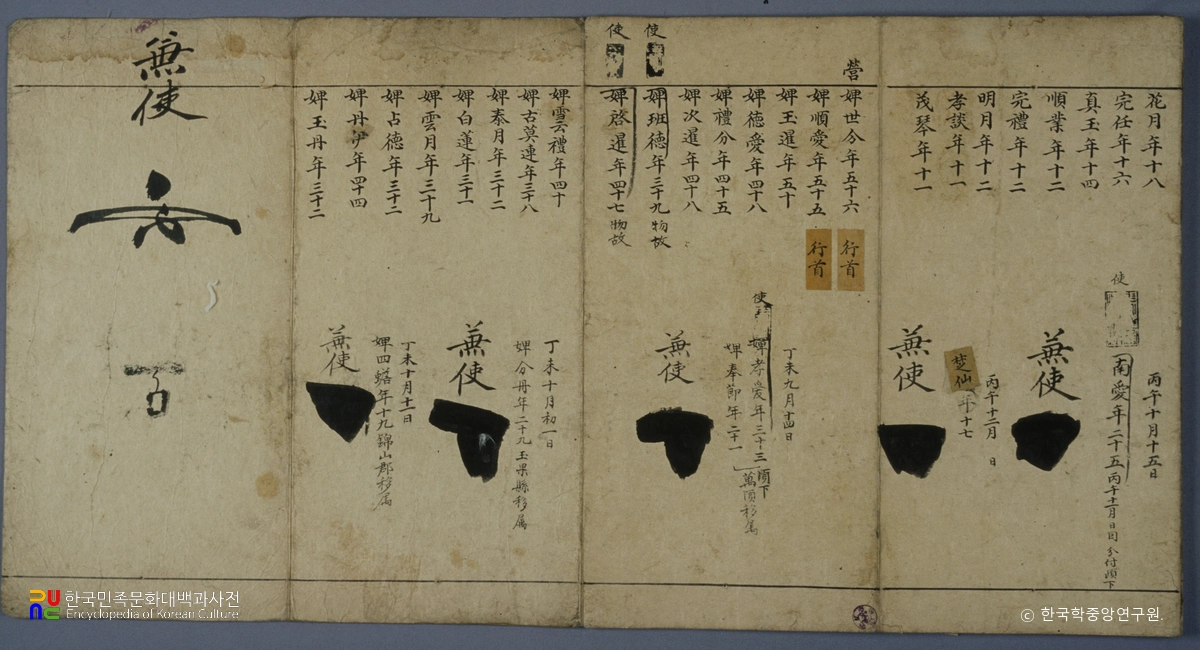 花月年十八
完任年十六
真玉年十四
順業年十二
完禮年十二
明月年十二
孝談年十一
茂琴年十一
丙午十月十五日
使
南愛年二十五丙午十二月日因分付頉下
兼使
丙午十二月 日
楚仙年十七
兼使
營
婢世分年五十六
行首
婢順愛年五十五
行首
婢玉暹年五十
婢德愛年四十八
婢禮分年四十五
婢次暹年四十八
使
婢班德年三十九物故
使
婢啓暹年四十七物故
丁未九月十四日
使
婢孝愛年三十三頉下
婢奉節年二十一萬頃移属
兼使
婢雪云禮年四十
婢古莫連年三十八
婢泰月年三十二
婢白蓮年三十一
婢雲月年三十九
婢占德年三十二
婢丹尹年四十四
婢玉丹年三十二
丁未十月初一日
婢分丹年二十九玉果縣移属
兼使
丁未十月十一日
婢四蟾年十九錦山郡移属
兼使
兼使
한국민족문화대백과사전
Encyclopedia of Korean Culture
© 한국학중앙연구원.